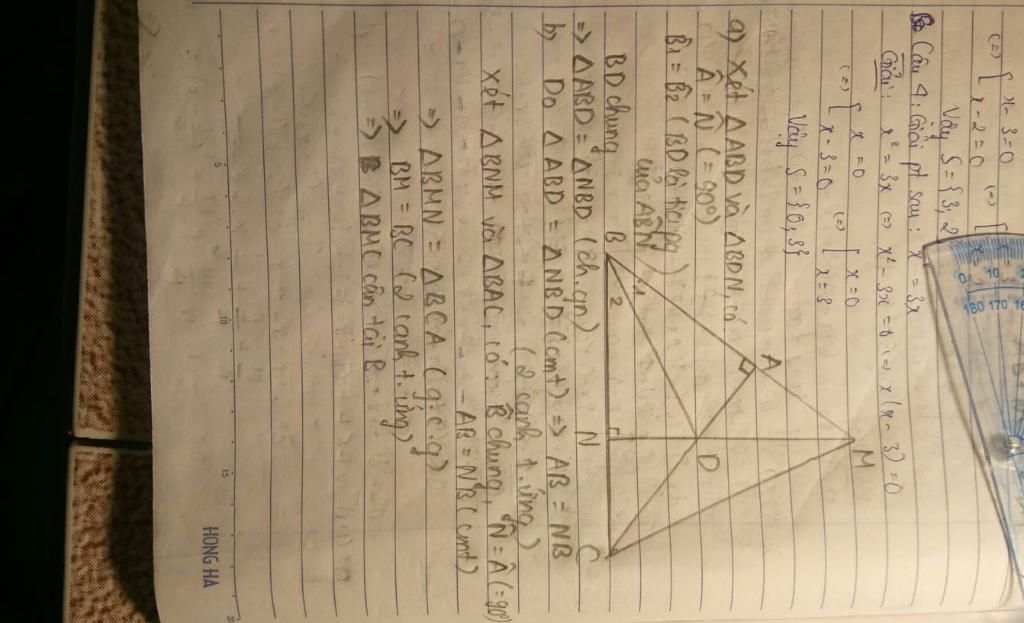 (=) { x - 3 = 0 (=) {
x - 2 = 0
Vậy S = { 3; 2
Câu 4: Giải pt sau: x² = 3x
Giải: x² = 3x (=) x² - 3x = 0 (=) x (x - 3) = 0
(=) { x = 0 (=) { x = 0
x - 3 = 0 x = 3
Vậy S = { 0; 3 }
a) Xét △ABD và △BDN, có
Â = N̂ (= 90°)
B̂1 = B̂2 ( BD là tia pg
của AB̂N )
BD chung
=> △ABD = △NBD (ch.gn)
b) Do △ABD = △NBD (cmt) => AB = NB
( 2 cạnh t.ứng )
Xét △BNM và △BAC, có: B̂ chung, N̂ = Â (= 90°)
- AB = NB (cmt)
=> △BMN = △BCA ( g.c.g )
=> BM = BC ( 2 cạnh t.ứng )
=> △BMC cân tại B
A
M
B
1
2
D
N
C
0 10
180 170
5
10
15
HONG HA